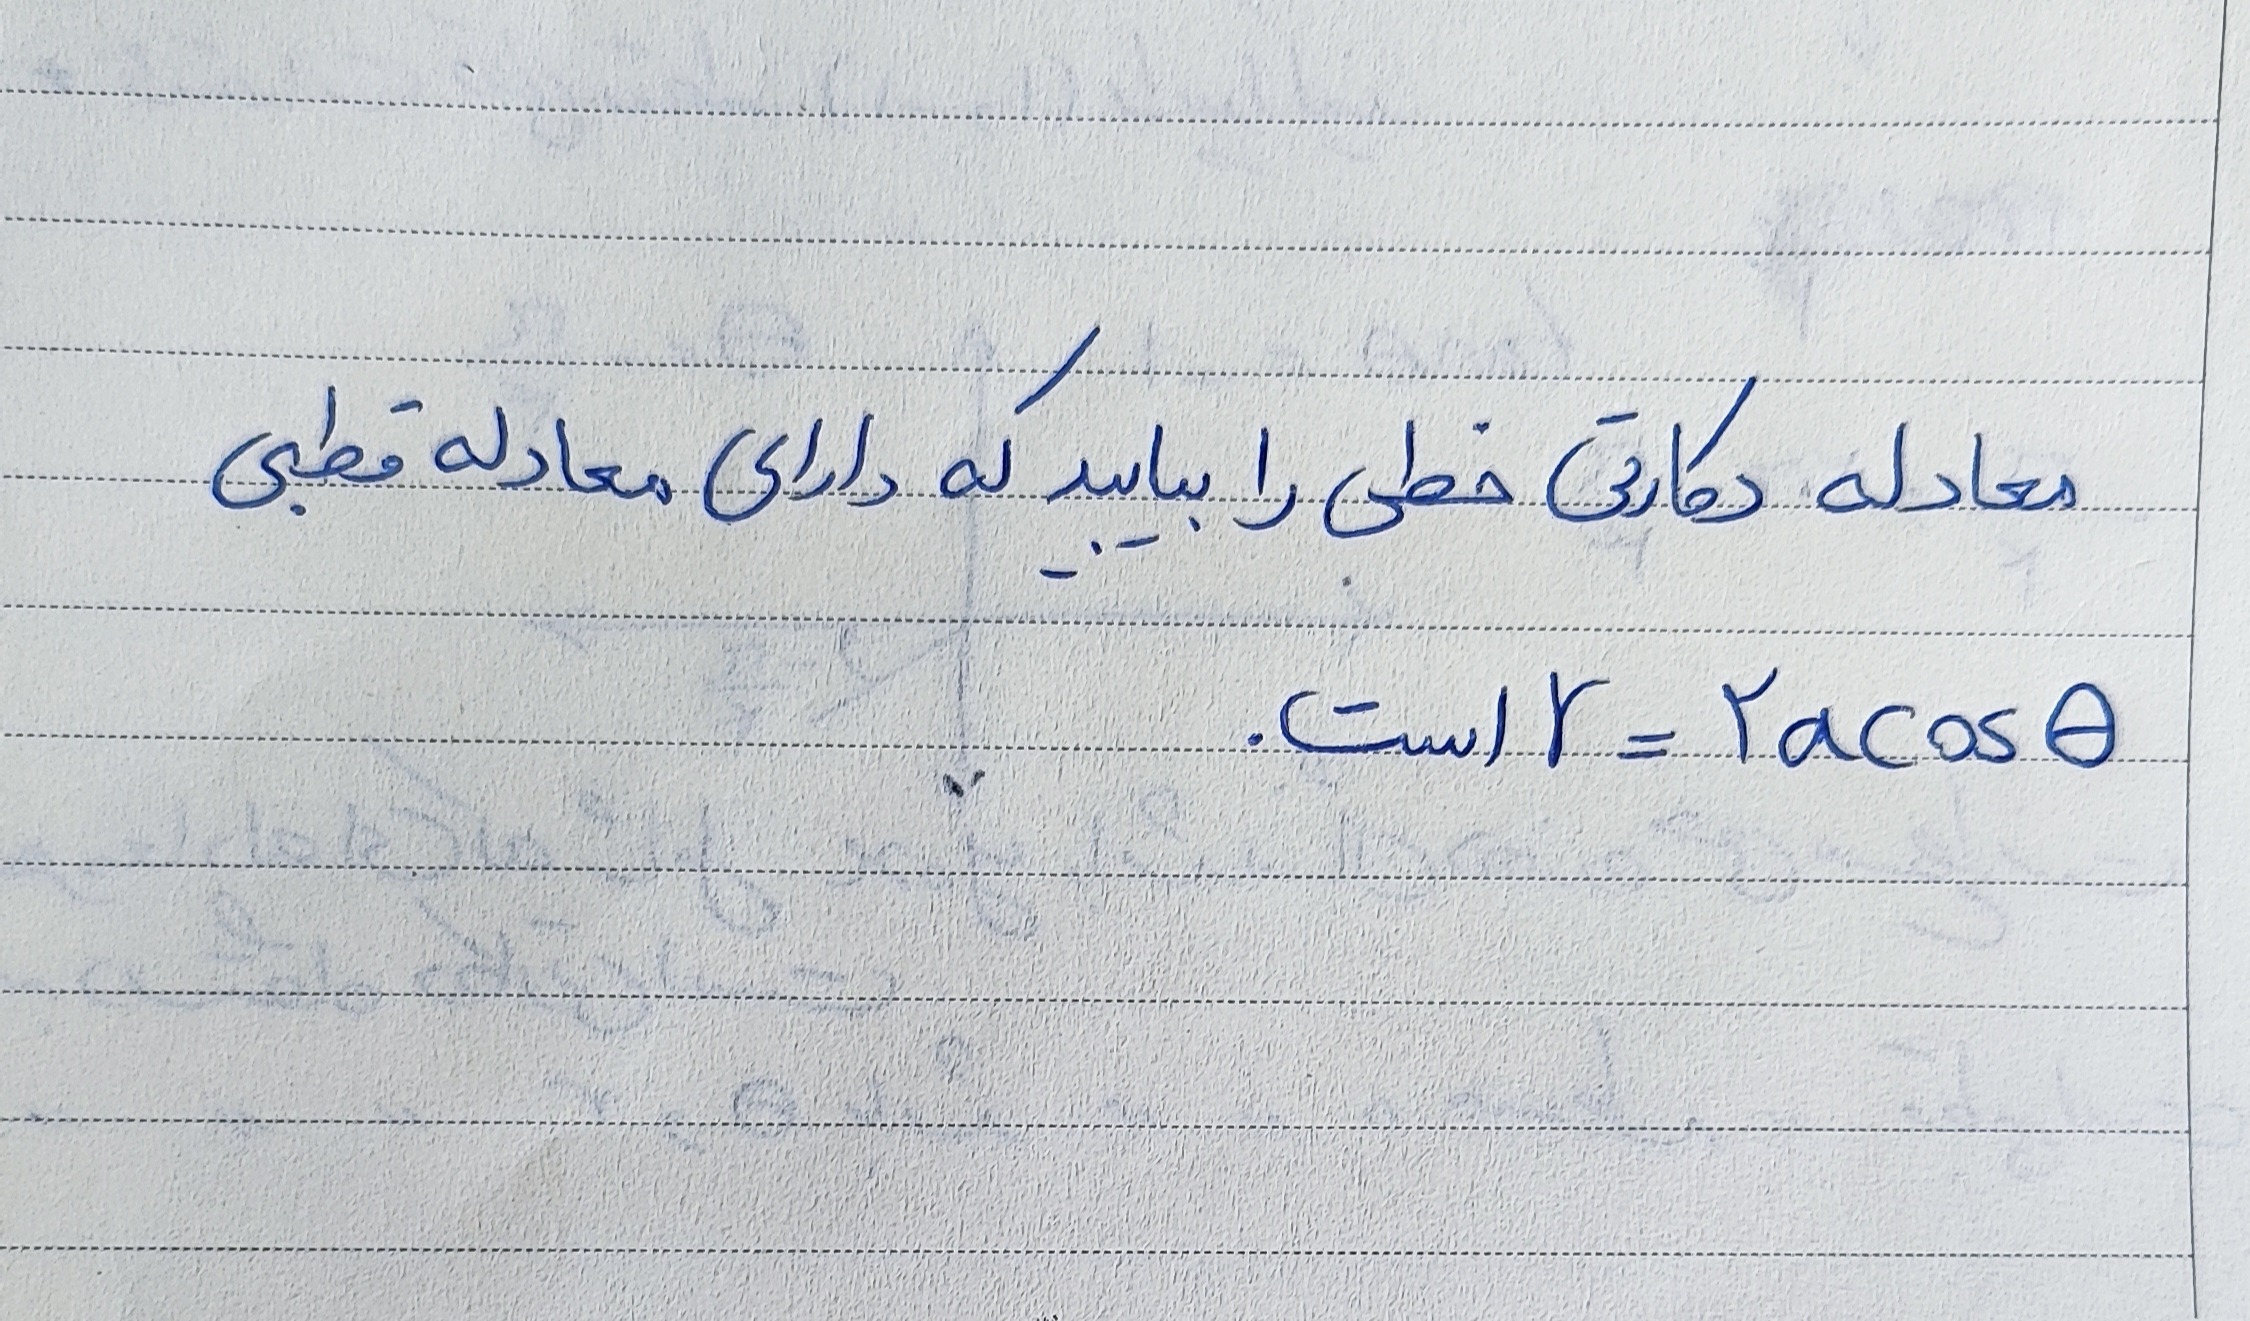 معادله دکارتی خطی را بیابید که دارای معادله قطبی
r = ۲a cos θ است.